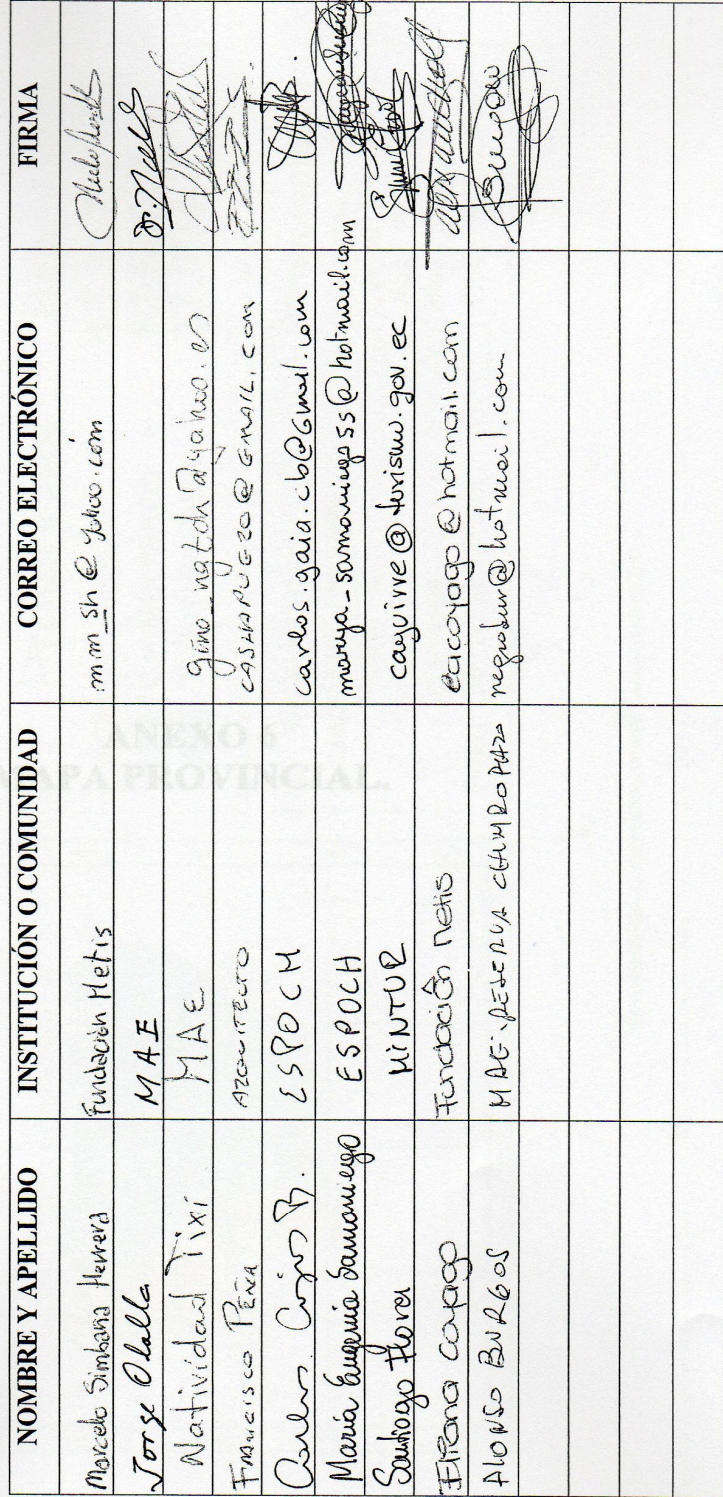 NOMBRE Y APELLIDO INSTITUCIÓN O COMUNIDAD CORREO ELECTRÓNICO FIRMA
Marcelo Simbaña Herrera Fundación Metis m.m_sh@yahoo.com
Jorge Olalla MAE
Natividad Tixi MAE gino_natdh@yahoo.es
Francisco Peña ARQUITECTO
Carlos B. ESPOCH carlos.gaia.cb@Gmail.com
María Eugenia Samaniego ESPOCH marya-samaniegoss@hotmail.com
Santiago Flores MINTUR caguirre@turismo.gov.ec
Eliana Cayago Fundación Metis eacayago@hotmail.com
ALONSO BURGOS MAE-RESERVA CHIMBORAZO negrobur@hotmail.com
ANEXO 6
MAPA PROVINCIAL.